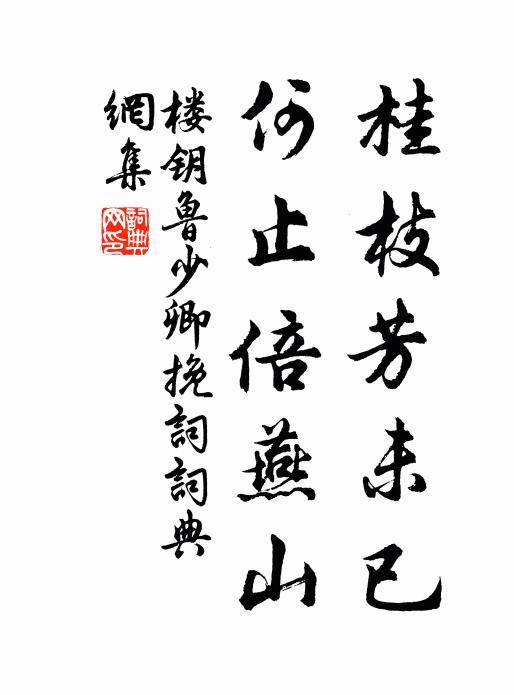 桂枝芳未已
何止倍燕山
楼钥鲁少卿挽詞詞典
網集
詞典网印